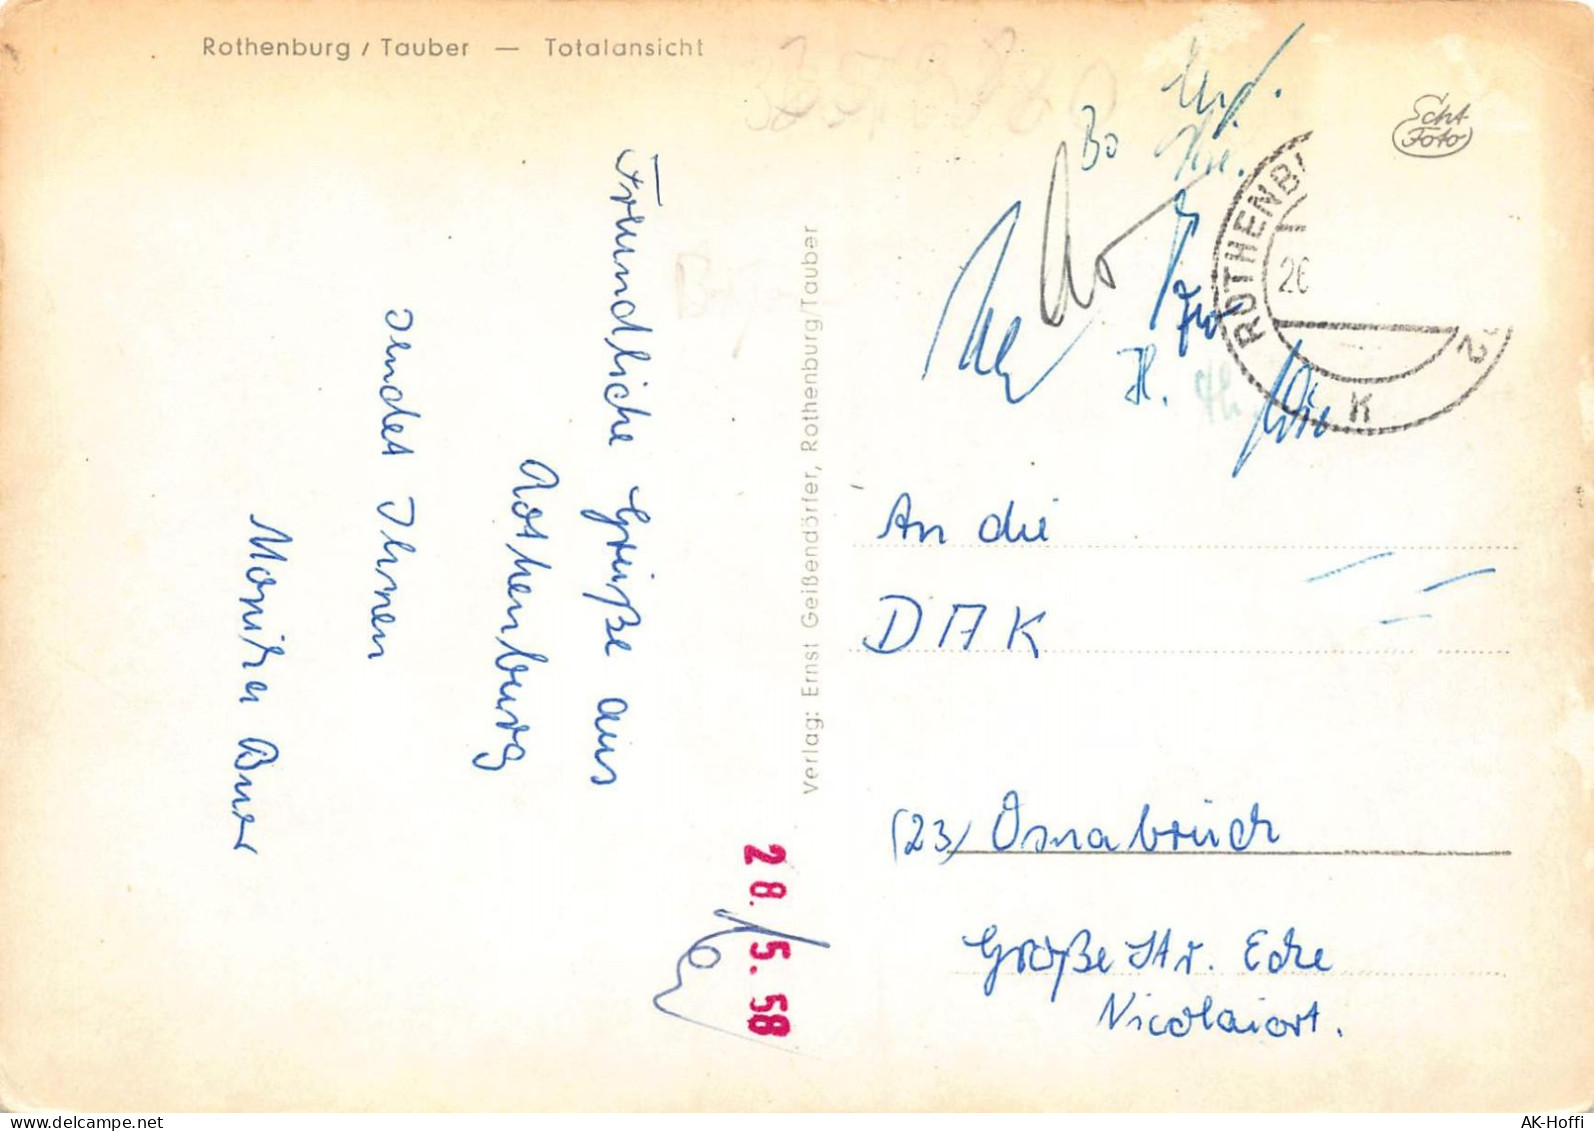 Rothenburg / Tauber — Totalansicht
Echt
Foto
ROTHENB
26
2
K
Bo
H.
Freundliche Grüße aus
Rothenburg
sendet Ihnen
Monika
Verlag: Ernst Geißendörfer, Rothenburg/Tauber
28. 5. 58
An die
DAK
(23) Osnabrück
Große Str. Ecke
Nicolaiort.
AK-Hoffi
www.delcampe.net